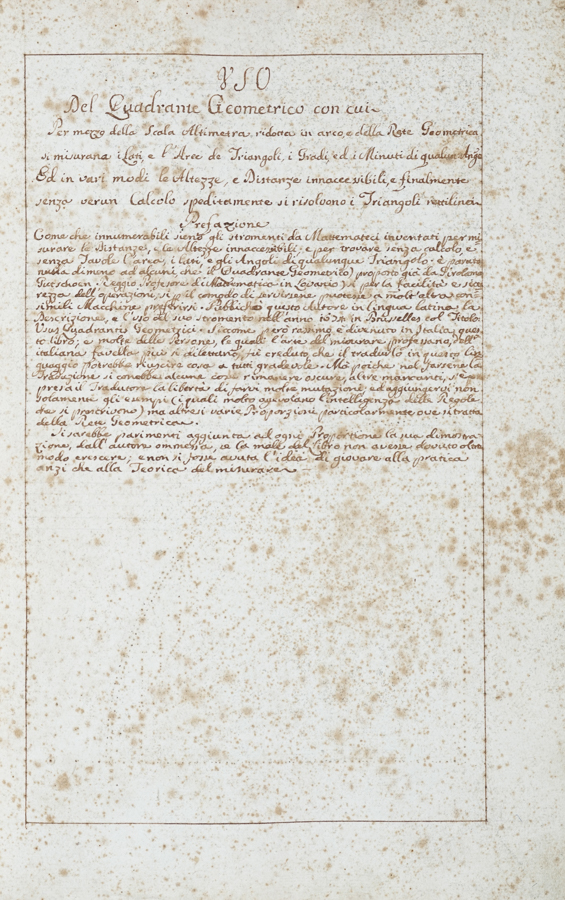 VSO
Del Quadrante Geometrico con cui
Per mezzo della Scala Altimetra ridotta in arco, e della Rete Geometrica,
si misurano i Lati, e l'Aree de Triangoli, i Gradi, ed i Minuti di qualun
Ed in vari modi le Altezze, e Distanze innaccessibili, e finalmente
senza verun Calcolo speditamente si risolvono i Triangoli rettilinei
Prefazione
Come che innumerabili sieno gli stromenti da Mattematici inventati per mi
surare le Distanze, e le Altezze innaccessibili; e per trovare senza calcolo, e
senza Tavole l'area, i lati, e gli Angoli di qualunque Triangolo: è parato
nulla dimeno ad alcuni che il Quadrante Geometrico proposto già da
(Reggio Profesore di Mattematica in Lovanio) per la facilità e
rezza dell'operazioni, e il comodo di servirsene potesse a molt'altre con
simili Macchine preferirsi. Publicò questo Autore in Lingua Latina la
Descrizione, e l'uso del suo stromento nell'anno in Bruxelles col Titolo:
Usus Quadrantis Geometrici. Siccome però rarissimo è divenuto in Italia ques
to libro; e molte delle Persone, le quali l'arte del misurare professano, dell'
italiana favella più si dilettano, si è creduto, che il tradurlo in questo Lin
guaggio potrebbe riuscire cosa a tutti gradevole. Ma poiche nel farsene la
Traduzione si conobbe alcune cose rimanere oscure, altre mancanti, si è
presa il Traduttore la libertà di farvi molte mutazioni, ed aggiungervi non
solamente gli esempi (i quali molto agevolano l'intelligenza delle Regole
che si prescrivono) ma altresi varie Proporzioni particolarmente ove si tratta
della Rete Geometrica.
Si sarebbe parimenti aggiunta ad ogni Proporzione la sua dimostra
zione, dall'autore ommessa, se la mole del libro non avesse dovuto oltre
modo crescere, e non si fosse avuta l'idea di giovare alla pratica
anzi che alla Teorica del misurare